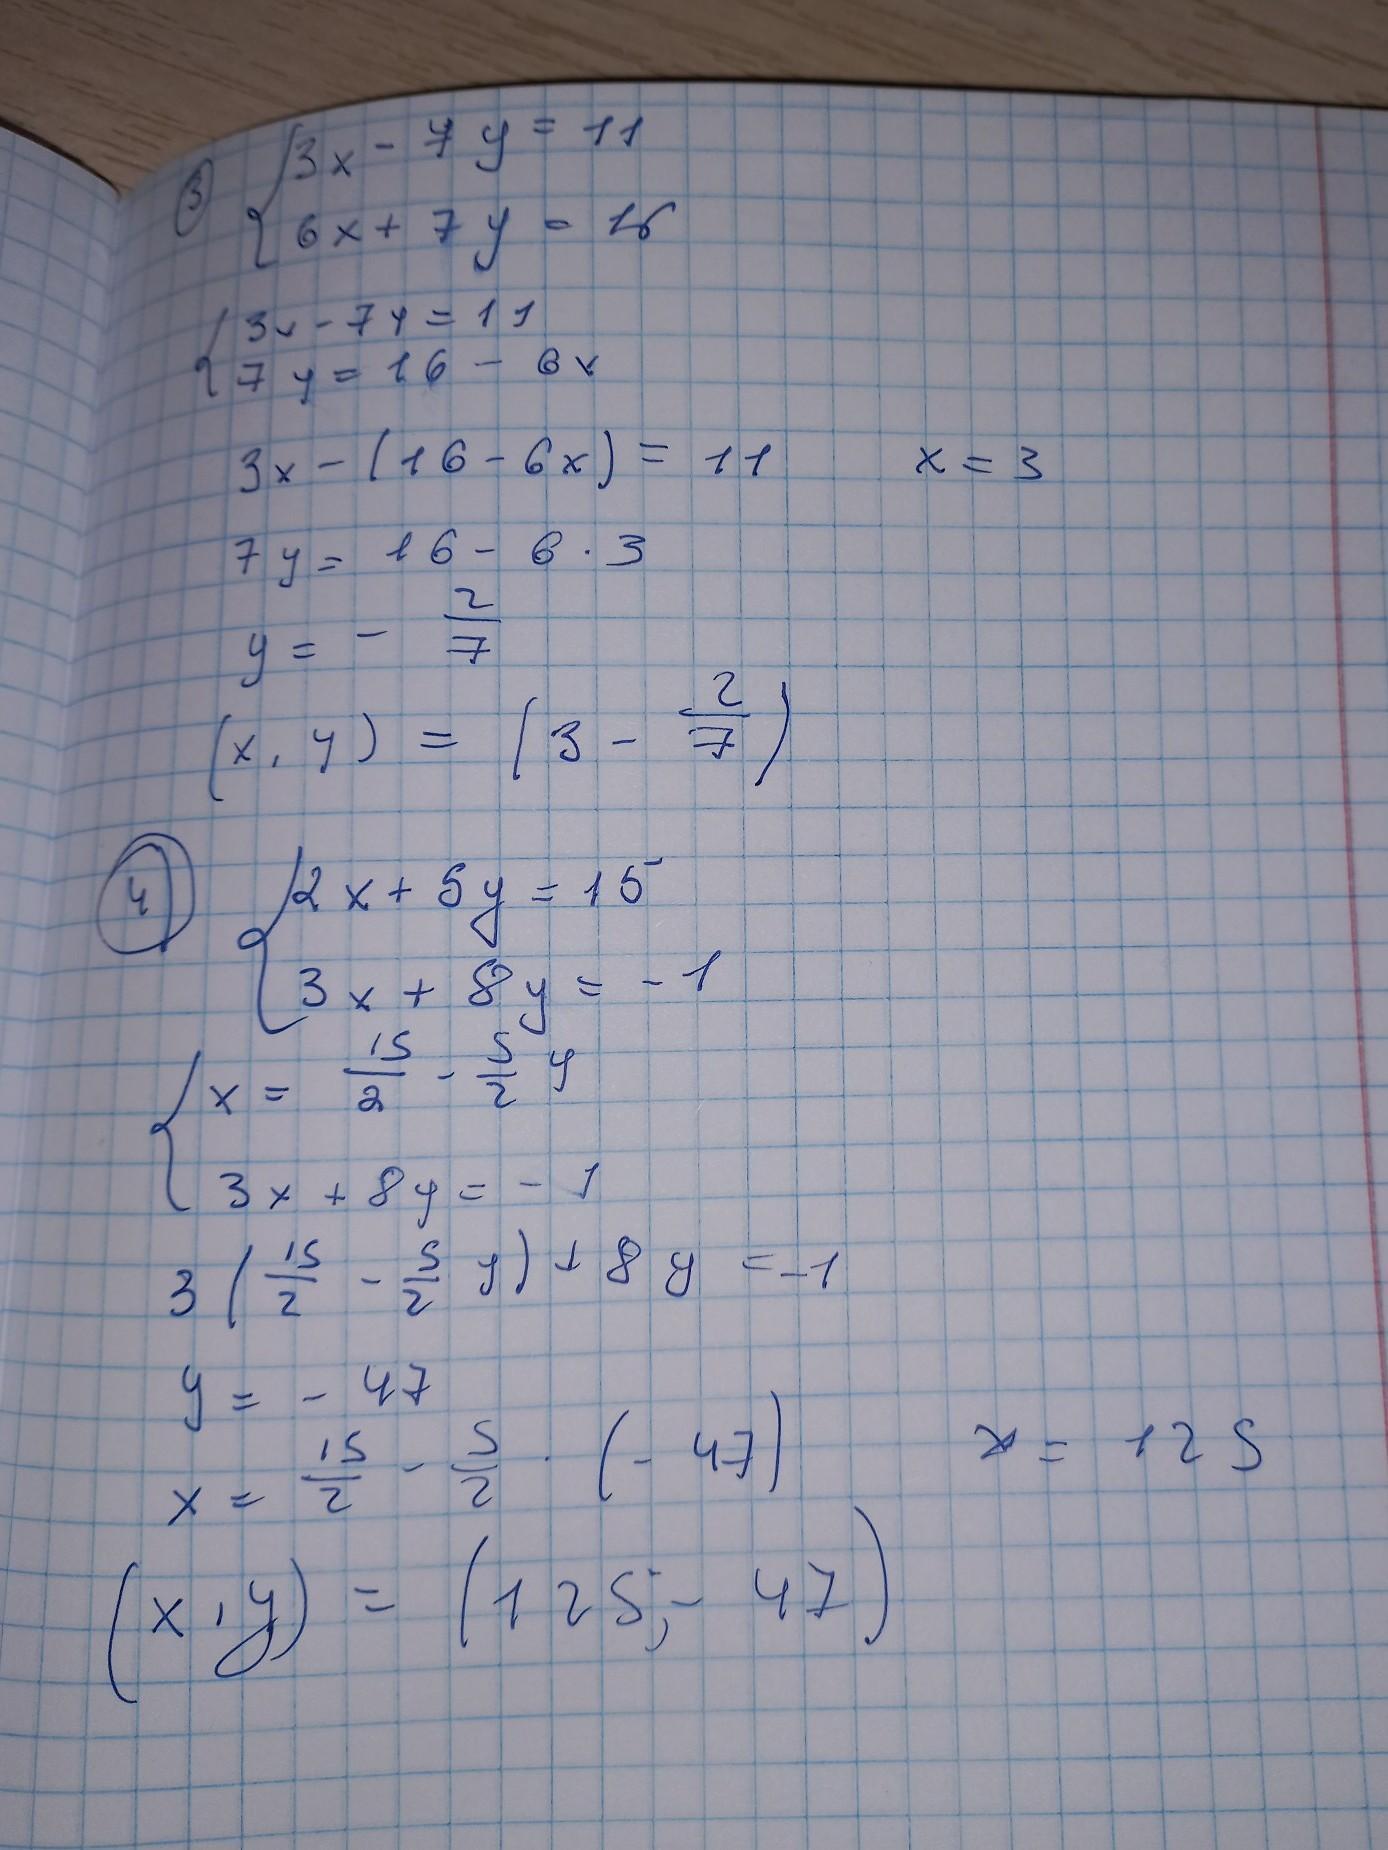 ③ { 3x - 7y = 11
6x + 7y = 16
{ 3x - 7y = 11
7y = 16 - 6x
3x - (16 - 6x) = 11 x = 3
7y = 16 - 6 · 3
y = - 2/7
(x, y) = (3 - 2/7)
④ { 2x + 5y = 15
3x + 8y = -1
{ x = 15/2 - 5/2 y
3x + 8y = -1
3 (15/2 - 5/2 y) + 8y = -1
y = - 47
x = 15/2 - 5/2 · (- 47) x = 125
(x, y) = (125; - 47)